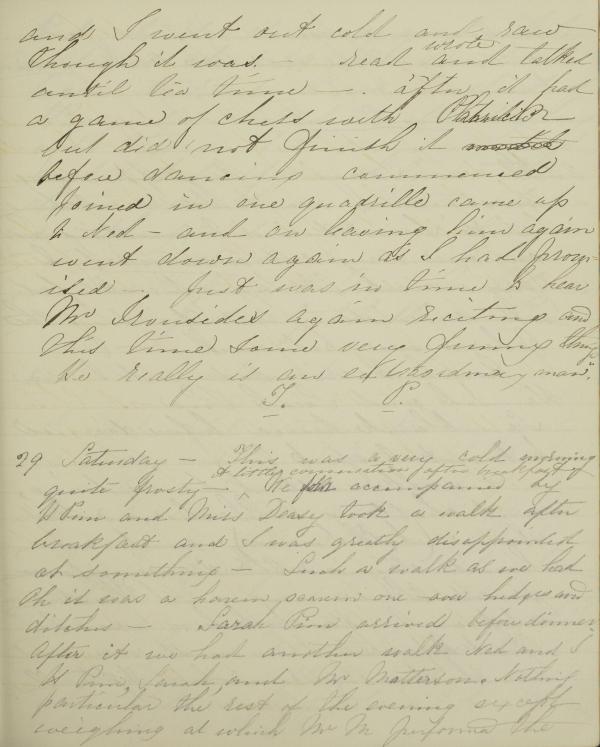 and I went out cold and raw
though it was. - read and wrote talked
until tea time - . after it had
a game of chess with
but did not finish it
before dancing commenced
joined in one quadrille came up
to Ned - and on leaving him again
went down again as I had prom-
ised - Just was in time to hear
Mr Ironsides again reciting and
this time some very funny things
He really is an extraordinary man".
T. P.
29 Saturday - This was a very cold morning
a little conversation after breakfast
quite frosty - We accompanied by
H Pim and Miss Deasy took a walk after
breakfast and I was greatly disappointed
at something - Such a walk as we had
Oh it was a harem scarem one over hedges and
ditches - Sarah Pim arrived before dinner
After it we had another walk Ned and I
H Pim, Sarah, and Mr Matterson. Nothing
particular the rest of the evening except
weighing at which Mr M performed the